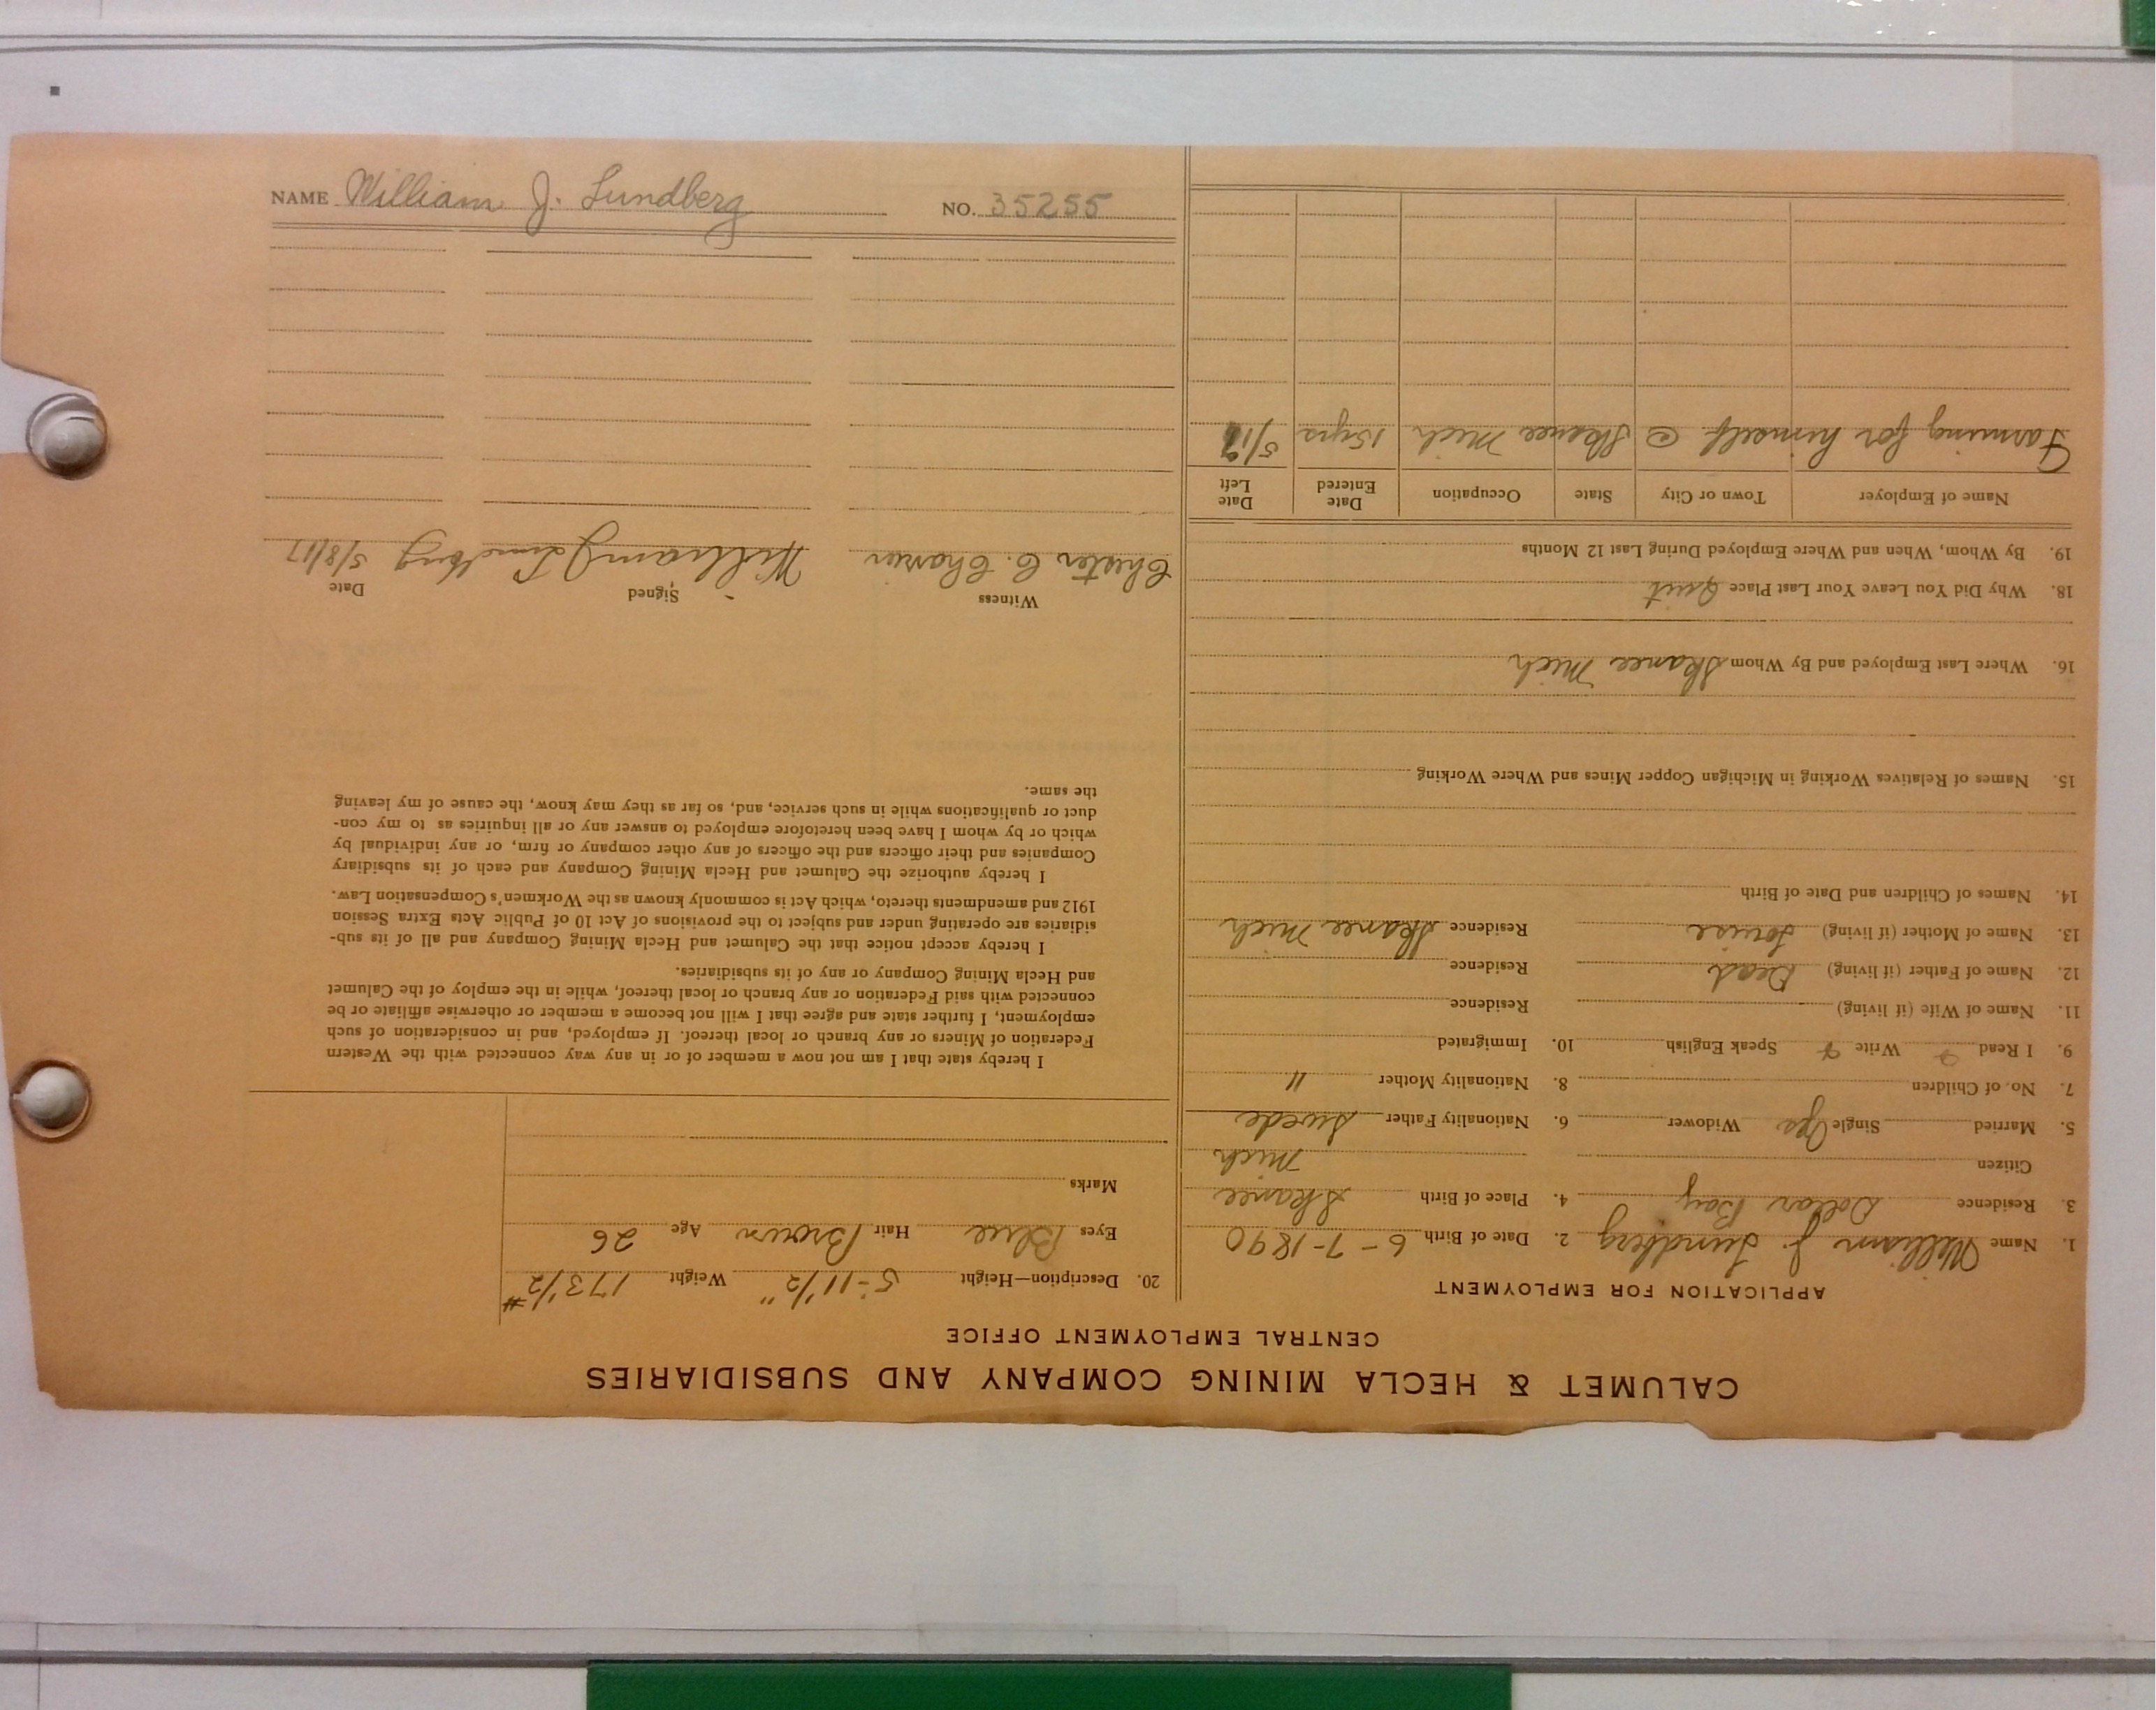 NAME William J. Lundberg NO. 35255
CALUMET & HECLA MINING COMPANY AND SUBSIDIARIES
CENTRAL EMPLOYMENT OFFICE
APPLICATION FOR EMPLOYMENT
1. Name William J. Lundberg 2. Date of Birth 6-7-1890
3. Residence Dollar Bay 4. Place of Birth Skanee
Citizen Mich
5. Married Single Yes Widower 6. Nationality Father Swede
7. No. of Children 8. Nationality Mother "
9. I Read Write Speak English 10. Immigrated
11. Name of Wife (if living) Residence
12. Name of Father (if living) Dead Residence
13. Name of Mother (if living) Louise Residence Skanee Mich
14. Names of Children and Date of Birth
15. Names of Relatives Working in Michigan Copper Mines and Where Working
16. Where Last Employed and By Whom Skanee Mich
18. Why Did You Leave Your Last Place Quit
19. By Whom, When and Where Employed During Last 12 Months
Name of Employer Town or City State Occupation Date Entered Date Left
Farming for himself @ Skanee Mich 15 yrs 5/17
20. Description—Height 5-11 1/2" Weight 173 1/2 #
Eyes Blue Hair Brown Age 26
Marks
I hereby state that I am not now a member of or in any way connected with the Western
Federation of Miners or any branch or local thereof. If employed, and in consideration of such
employment, I further state and agree that I will not become a member or otherwise affiliate or be
connected with said Federation or any branch or local thereof, while in the employ of the Calumet
and Hecla Mining Company or any of its subsidiaries.
I hereby accept notice that the Calumet and Hecla Mining Company and all of its sub-
sidiaries are operating under and subject to the provisions of Act 10 of Public Acts Extra Session
1912 and amendments thereto, which Act is commonly known as the Workmen's Compensation Law.
I hereby authorize the Calumet and Hecla Mining Company and each of its subsidiary
Companies and their officers and the officers of any other company or firm, or any individual by
which or by whom I have been heretofore employed to answer any or all inquiries as to my con-
duct or qualifications while in such service, and, so far as they may know, the cause of my leaving
the same.
Witness Signed Date
Chester C. William J Lundberg 5/8/17